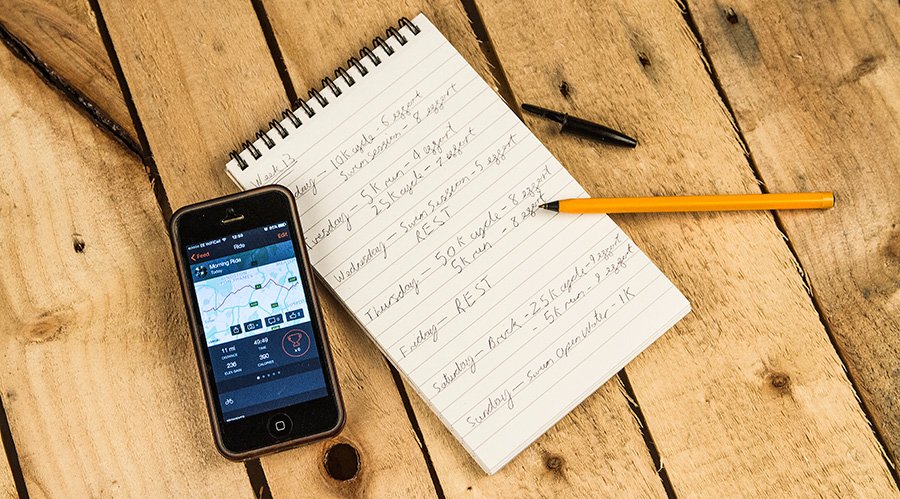 EE WiFiCall 12:59 81%
Feed Ride Edit
Morning Ride
Today
11 mi 49:49
DISTANCE TIME x6
236 390
ELEV GAIN CALORIES
Week 13
day - 10K cycle - 6 effort
Swim session - 8 effort
uesday - 5K run - 4 effort
25K cycle - 7 effort
Wednesday - Swim Session - 5 effort
REST
Thursday - 50K cycle - 8 effort
5K run - 8 effort
Friday - REST
Saturday - Brick - 25K cycle - 9 effort
- 5K run - 9 effort
Sunday - Swim Open Water - 1K